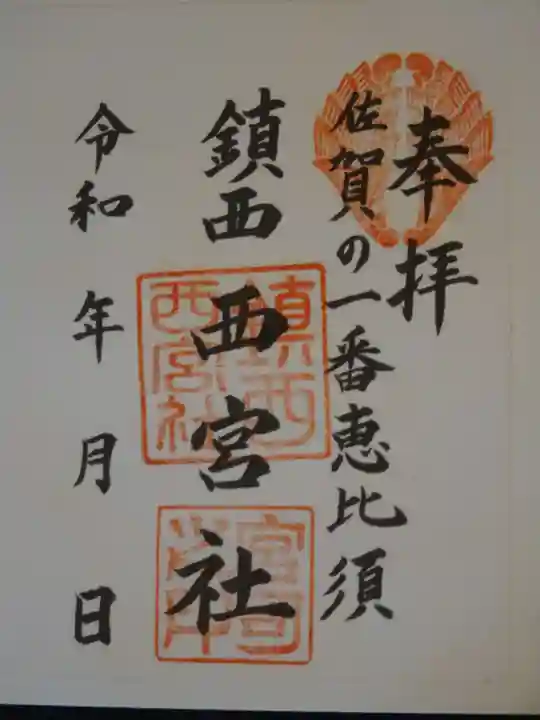 奉拝
佐賀の一番恵比須
鎮西西宮社
鎮西
西宮社
令和 年 月 日